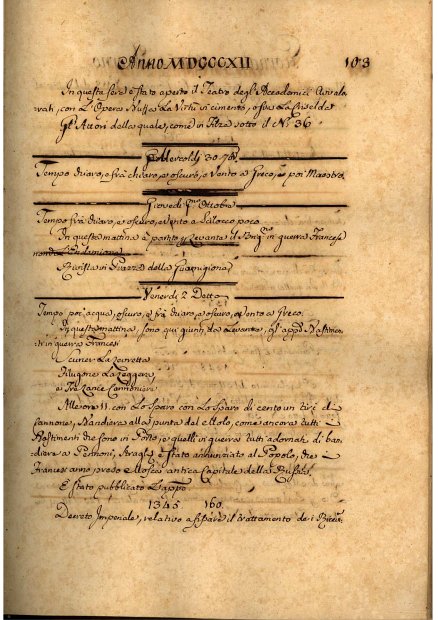 Anno MDCCCXII 103
In questa sera è stato aperto il Teatro degl'Accademici Avvalo
rati, con L'Opera La Virtù in cimento, o sia La Griselda
Gl'Attori della quale, come in Filza sotto il N° 36
Mercoldì 30
Tempo chiaro, e frà chiaro, e oscuro, e Vento a Greco, e poi Maestro
Giovedì P° Ottobre
Tempo frà chiaro, e oscuro, e Vento a Scilocco poco
In questa mattina è partito p Levante il in guerra Francese
nom°
Rivista in Piazza della Guarnigione
Venerdì 2 Detto
Tempo per acqua, oscuro, e frà chiaro, e oscuro, e Vento a Greco
In questa mattina, sono qui giunti da Levante, gl'app Bastimen
ti in guerra Francesi
La
La Leggera
e Tre Lance Cannoniere
Alle ore 11. con lo sparo con Lo Sparo di cento un tiri di
Cannone, Bandiera alla punta del Molo, come ancora tutti i
Bastimenti che sono in Porto, e quelli in guerra tutti adornati di ban
diere a Pennoni, è stato annunziato al Popolo, che i
Francesi anno preso Mosca antica Capitale della Russia
È stato pubblicato L'app
1345 160
Decreto Imperiale, relativo a fissare il trattamento de i